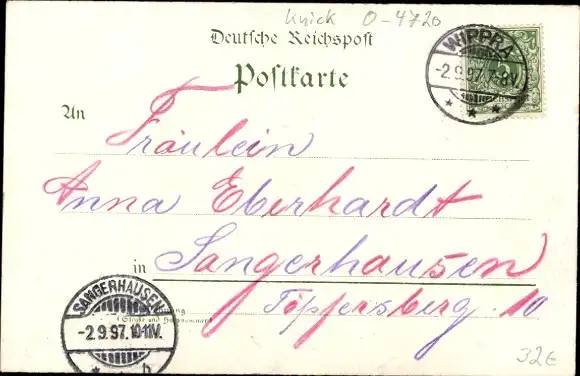 Knick O-4720
Deutsche Reichspost
Postkarte
WIPPRA
-2.9.97.7-8V.
5
An Fräulein
Anna Eberhardt
in Sangerhausen
Töpfersberg. 10
SANGERHAUSEN
-2.9.97.10-11V.
* b
32€